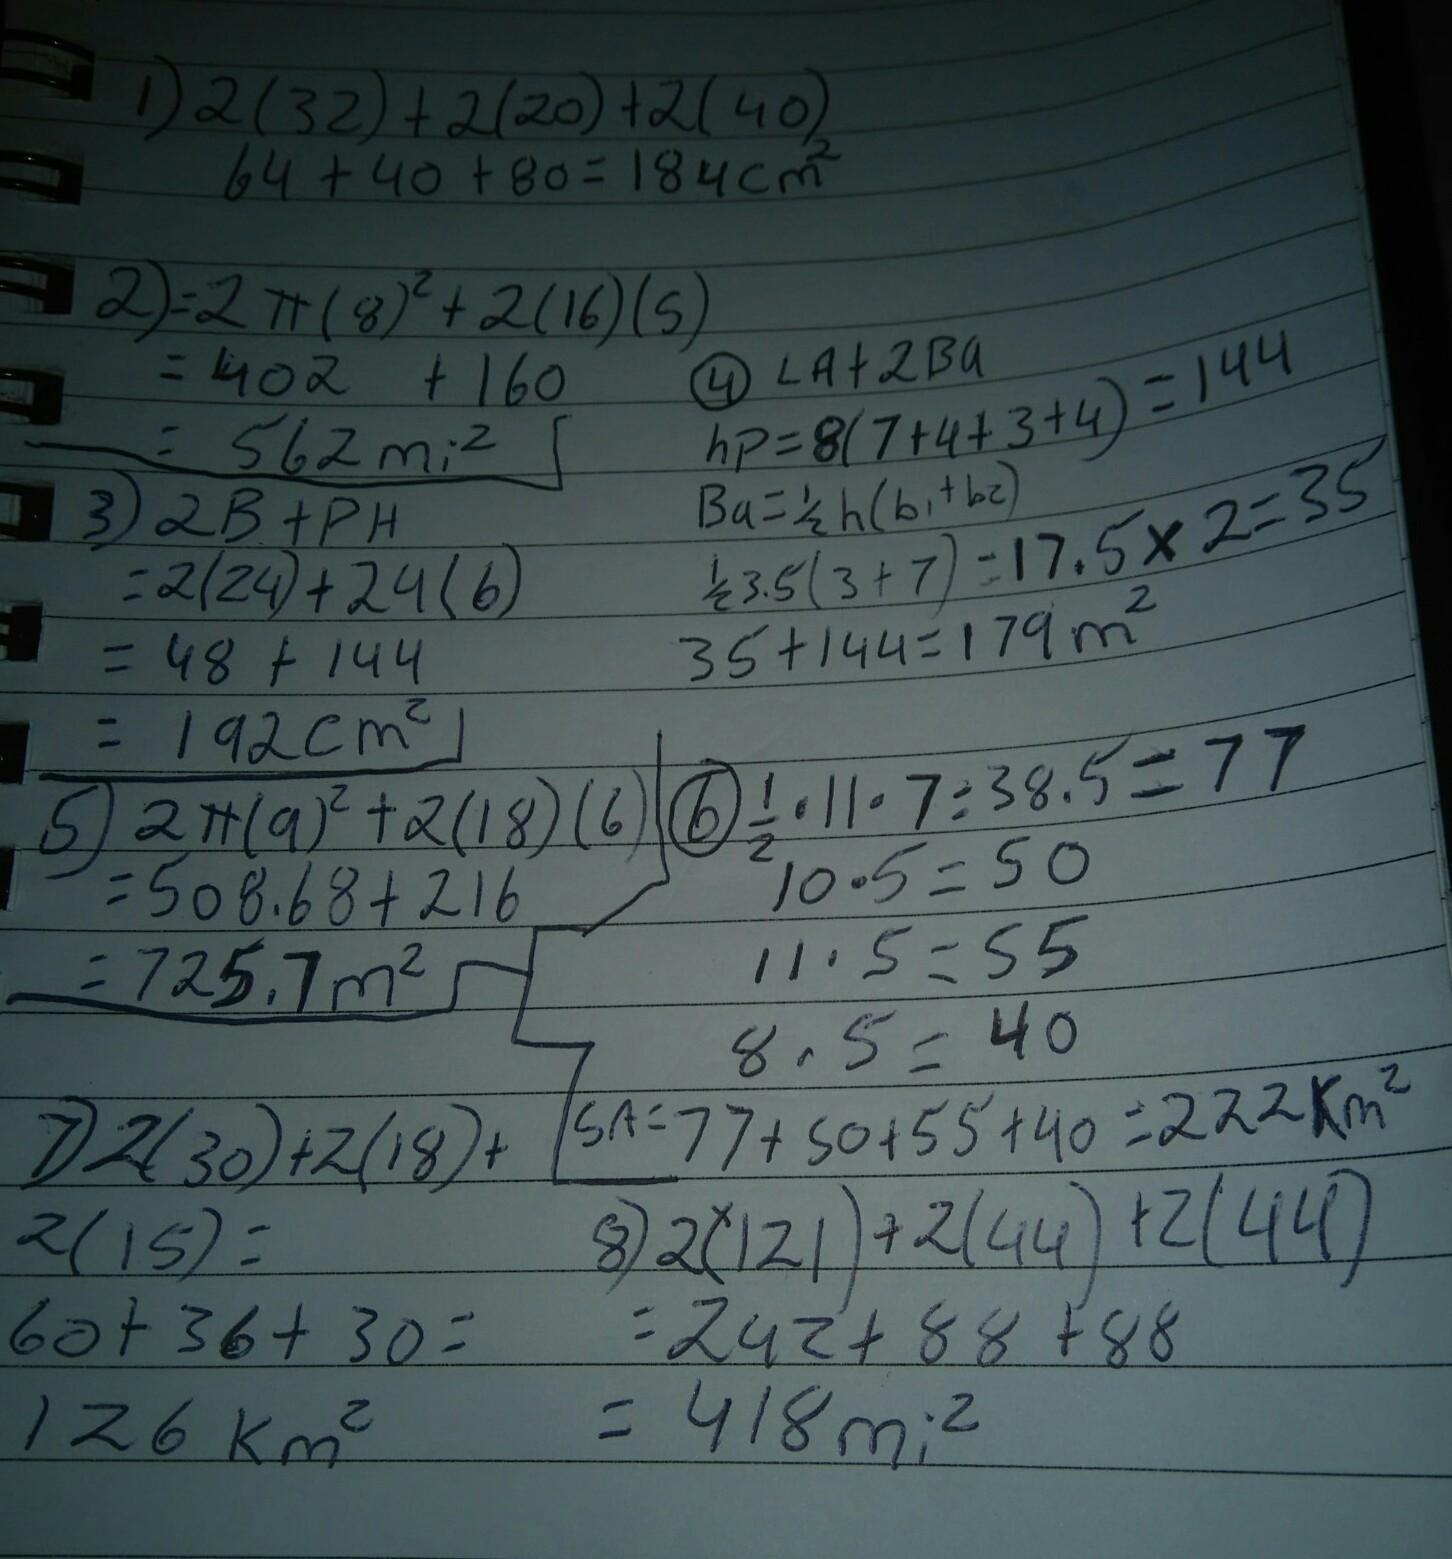 1) 2(32)+2(20)+2(40)
64+40+80=184cm²
2)=2π(8)²+2(16)(5)
=402 +160
= 562mi²
3) 2B+PH
=2(24)+24(6)
=48+144
= 192cm²
④ LA+2Ba
hp=8(7+4+3+4)=144
Ba=½h(b₁+b2)
½3.5(3+7)=17.5×2=35
35+144=179m²
5) 2π(9)²+2(18)(6)
=508.68+216
=725.7m²
⑥ ½·11·7=38.5=77
10·5=50
11·5=55
8·5=40
SA=77+50+55+40=222Km²
7) 2(30)+2(18)+
2(15)=
60+36+30=
126 Km²
8) 2(121)+2(44)+2(44)
=242+88+88
=418mi²